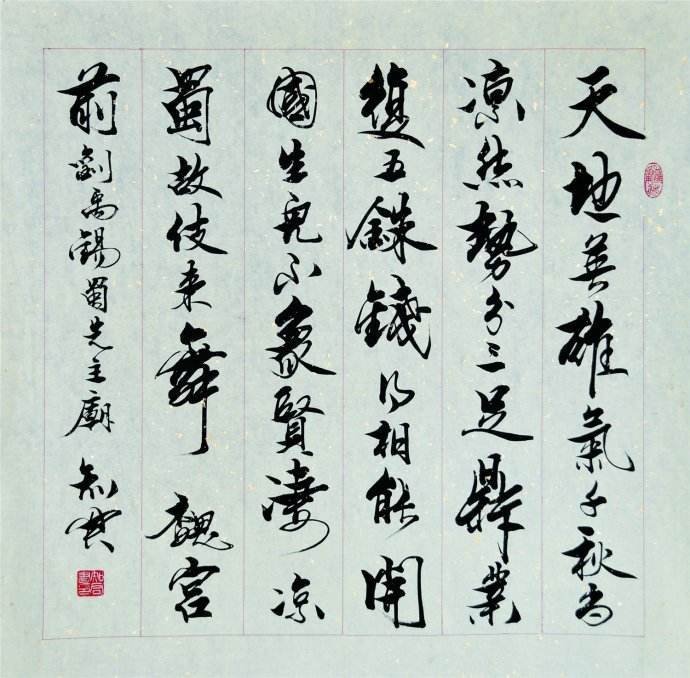 天地英雄氣千秋尚
凛然勢分三足鼎業
復五銖錢得相能開
國生兒不象賢淒凉
蜀故伎来舞魏宮
前劉禹錫蜀先主廟